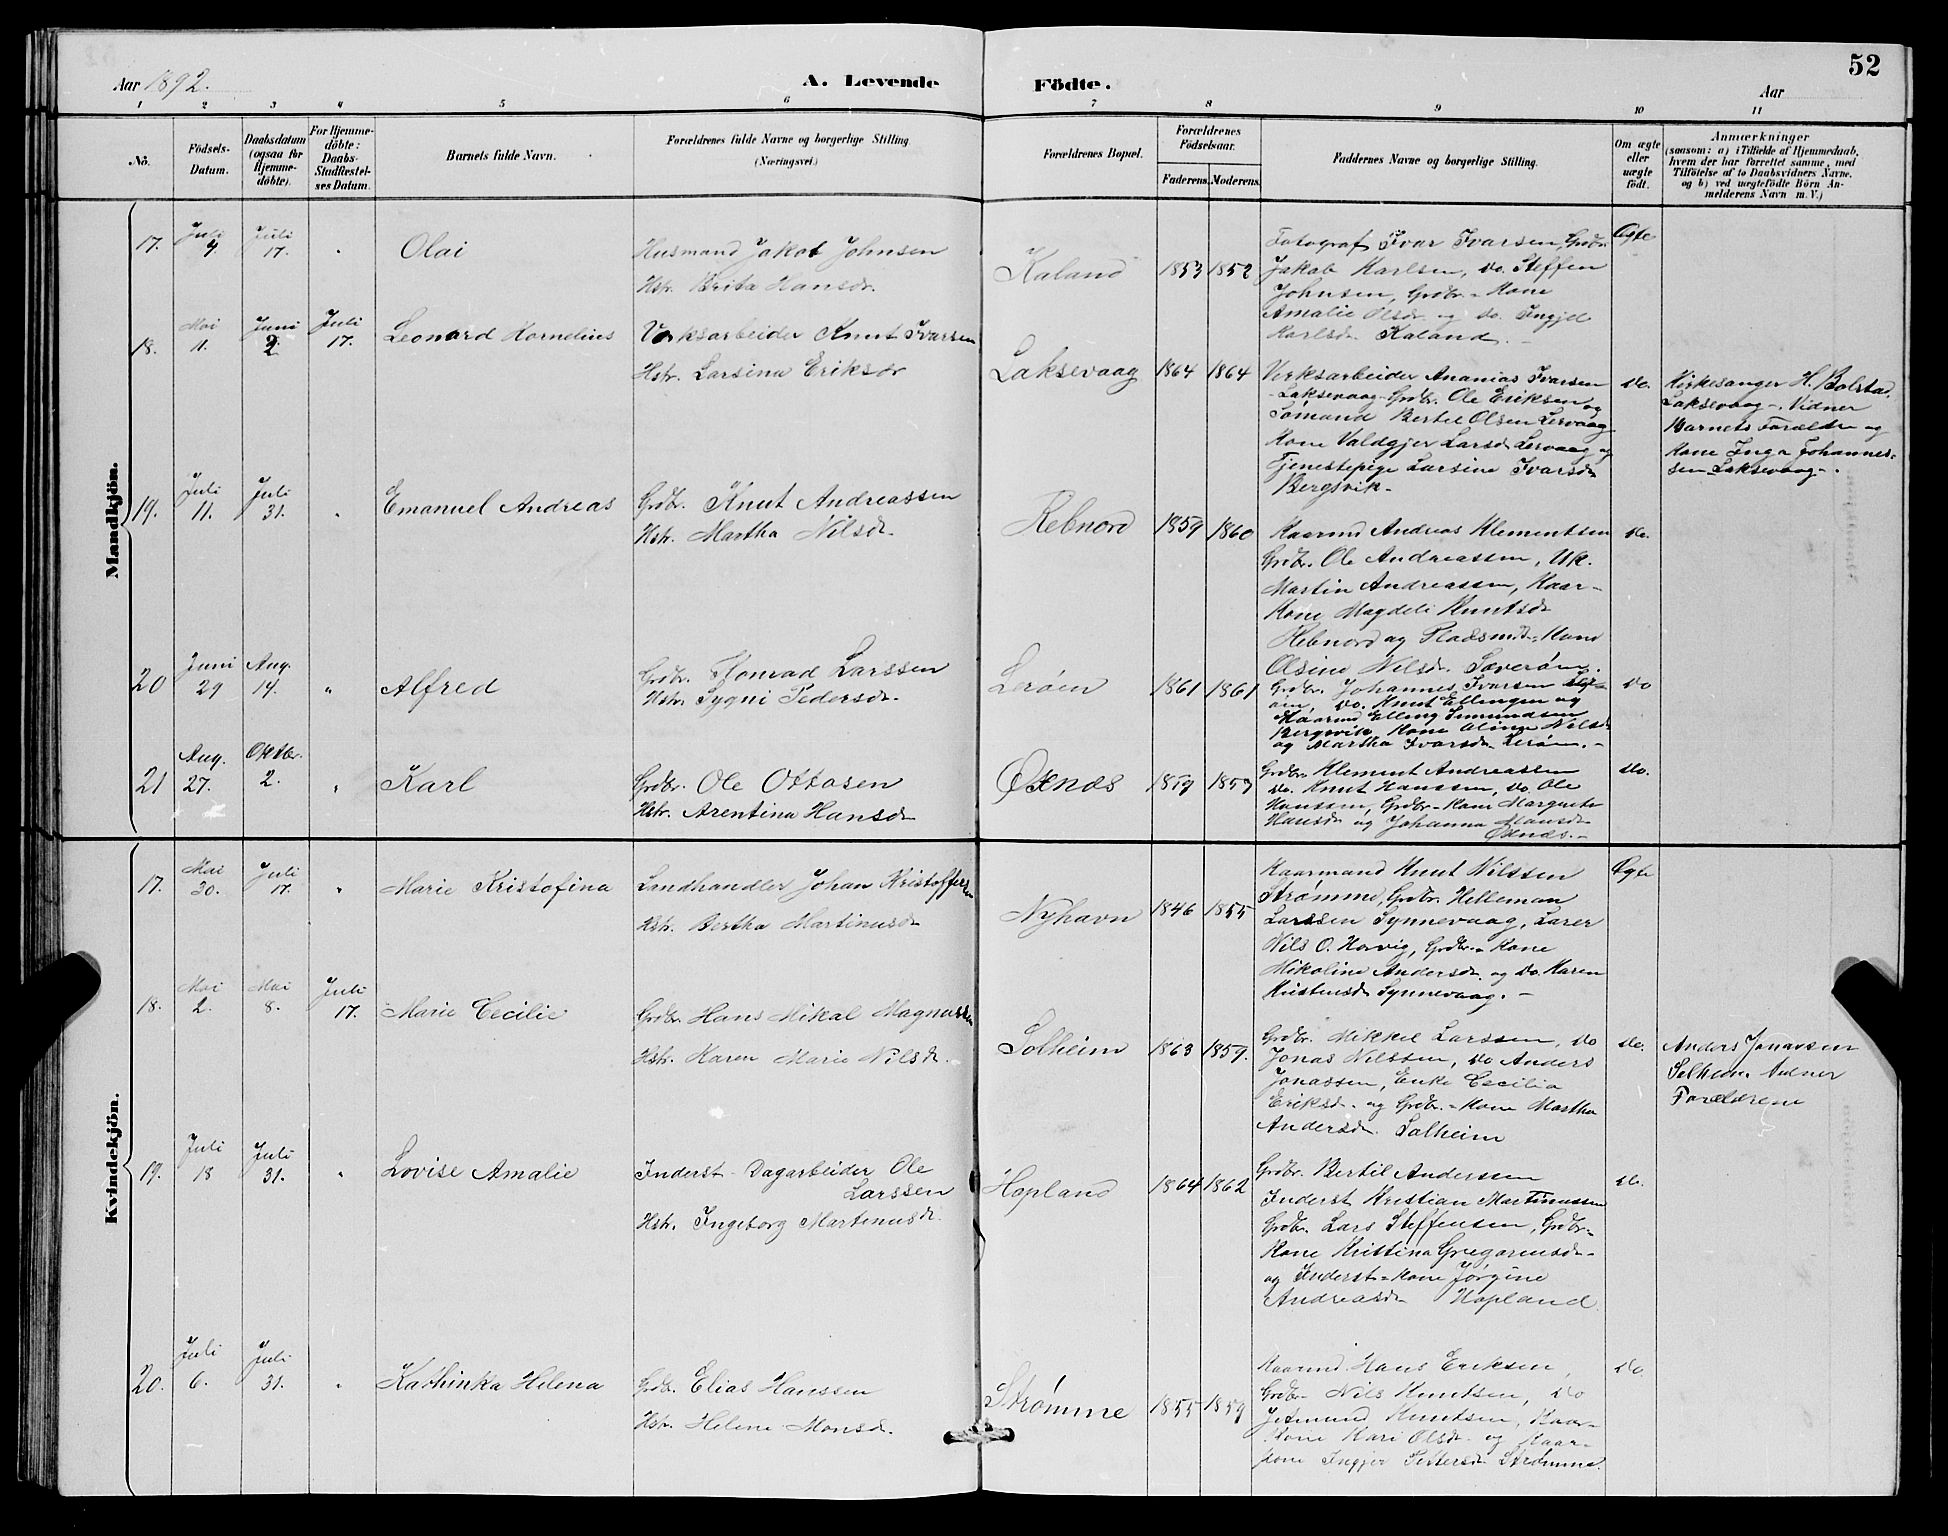 52
Aar 1892.
A. Levende Födte.
Aar
1 2 3 4 5 6 7 8 9 10 11
No.
Födsels-Datum.
Daabsdatum (ogsaa for Hjemme-döbte).
For Hjemme-döbte: Daabs-Stadfæstel-ses Datum.
Barnets fulde Navn.
Forældrenes fulde Navne og borgerlige Stilling (Næringsvei.)
Forældrenes Bopæl.
Forældrenes Födselsaar.
Faderens. Moderens.
Faddernes Navne og borgerlige Stilling.
Om ægte eller uægte födt.
Anmærkninger
(saasom: a) i Tilfælde af Hjemmedaab,
hvem der har forrettet samme, med
Tilföielse af to Daabsvidners Navne,
og b) ved uægtefödte Börn An-
melderens Navn m. V.)
Mandkjön.
17. Juli 4. Juli 17. " Olai
Husmand Jakob Johnsen
Hstr. Brita Hansdr.
Kaland 1853 1852
Fotograf Ivar Ivarsen, Grdbr.
Jakob Karlsen, do. Steffen
Johnsen, Grdbr.-Kone
Amalie Olsdr. og do. Ingjel
Karlsdr. Kaland. -
Ægte
18. Mai 11. Juni 2. Juli 17. Leonard Kornelius
Værksarbeider Knut Ivarsen
Hstr. Larsina Eriksdr
Laksevaag 1864 1864
Verksarbeider Ananias Ivarsen
Laksevaag Grdbr. Ole Eriksen og
Sømand Bertel Olsen Lervaag
Kone Valdgjer Larsdr. Lervaag og
Tjenestepige Larsine Ivarsdr.
Bergsvik-
do.
Kirkesanger H. Bolstad,
Laksevaag -. Vidner
Barnets Forældre og
Kone Inga Johannes-
sen Laksevaag -.
19. Juli 11. Juli 31. " Emanuel Andreas
Grdbr. Knut Andreassen
Hstr. Martha Nilsdr.
Rebnord 1859 1860
Kaarmd Andreas Klementsen
Grdbr. Ole Andreassen, Uk.
Martin Andreassen, Kaar-
Kone Magdeli Knutsdr
Rebnord og Pladsmd.-Kone
Olsine Nilsdr. Sæverøen.
do.
20 Juni 29 Aug. 14. " Alfred
Grdbr. Konrad Larssen
Hstr. Sygni Pedersdr.
Lerøen 1861 1861
Grdbr. Johannes Ivarsen Ler-
øen, do. Knut Ellingen og
Kaarmd Elling Immundsen
Bergsvik, Kone Alima Nilsdr
og Martha Ivarsdr. Lerøen. -
do
21 Aug. 27. Oktbr. 2. " Karl
Grdbr. Ole Ottosen
Hstr. Arentina Hansdr
Øxnæs 1859 1859
Grdbr. Klement Andreassen
do. Knut Hanssen, do. Ole
Hanssen, Grdbr-Kone Margreta
Hansdr og Johanna Monsdr
Øxnæs. -
do.
Kvindekjön.
17. Mai 30. Juli 17. " Marie Kristofina
Landhandler Johan Kristoffersen
Hstr. Bertha Martinusdr
Nyhavn 1846 1855
Kaarmand Knut Nilssen
Strømme, Grdbr. Helleman
Larssen Synnevaag, Lærer
Nils O. Horvig, Grdbr.-Kone
Mikoline Andersdr. og do. Karen
Kristensdr Synnevaag. -
Ægte
18. Mai 2. Mai 8. Juli 17. Marie Cecilie
Grdbr. Hans Mikal Magnussen
Hstr. Karen Marie Nilsdr.
Solheim 1863 1859.
Grdbr. Mikkel Larssen, do
Jonas Nilssen, do Anders
Jonassen, Enke Cecilia
Eriksdr. og Grdbr.-Kone Martha
Andersdr. Solheim
do.
Anders Jonassen
Solheim. Vidner
Forældrene
19. Juli 18 Juli 31. " Lovise Amalie
Inderst - Dagarbeider Ole
Larssen
Hstr. Ingeborg Martinusdr.
Hopland 1864 1862
Grdbr. Bertil Anderssen
Inderst Kristian Martinussen
Grdbr. Lars Steffensen, Grdbr-
Kone Kristina Gregoriusdr-
og Inderst-Kone Jørgine
Andreasdr Hopland.
do.
20. Juli 6. Juli 31. " Kathinka Helena
Grdbr. Elias Hanssen
Hstr. Helene Monsdr.
Strømme 1855 1859
Kaarmd. Hans Eriksen,
Grdbr- Nils Knutsen, do
Jetmund Knutsen, Kaar-
Kone Kari Olsdr. og Kaar-
Kone Ingjer Pettersdr Strømme.
do.